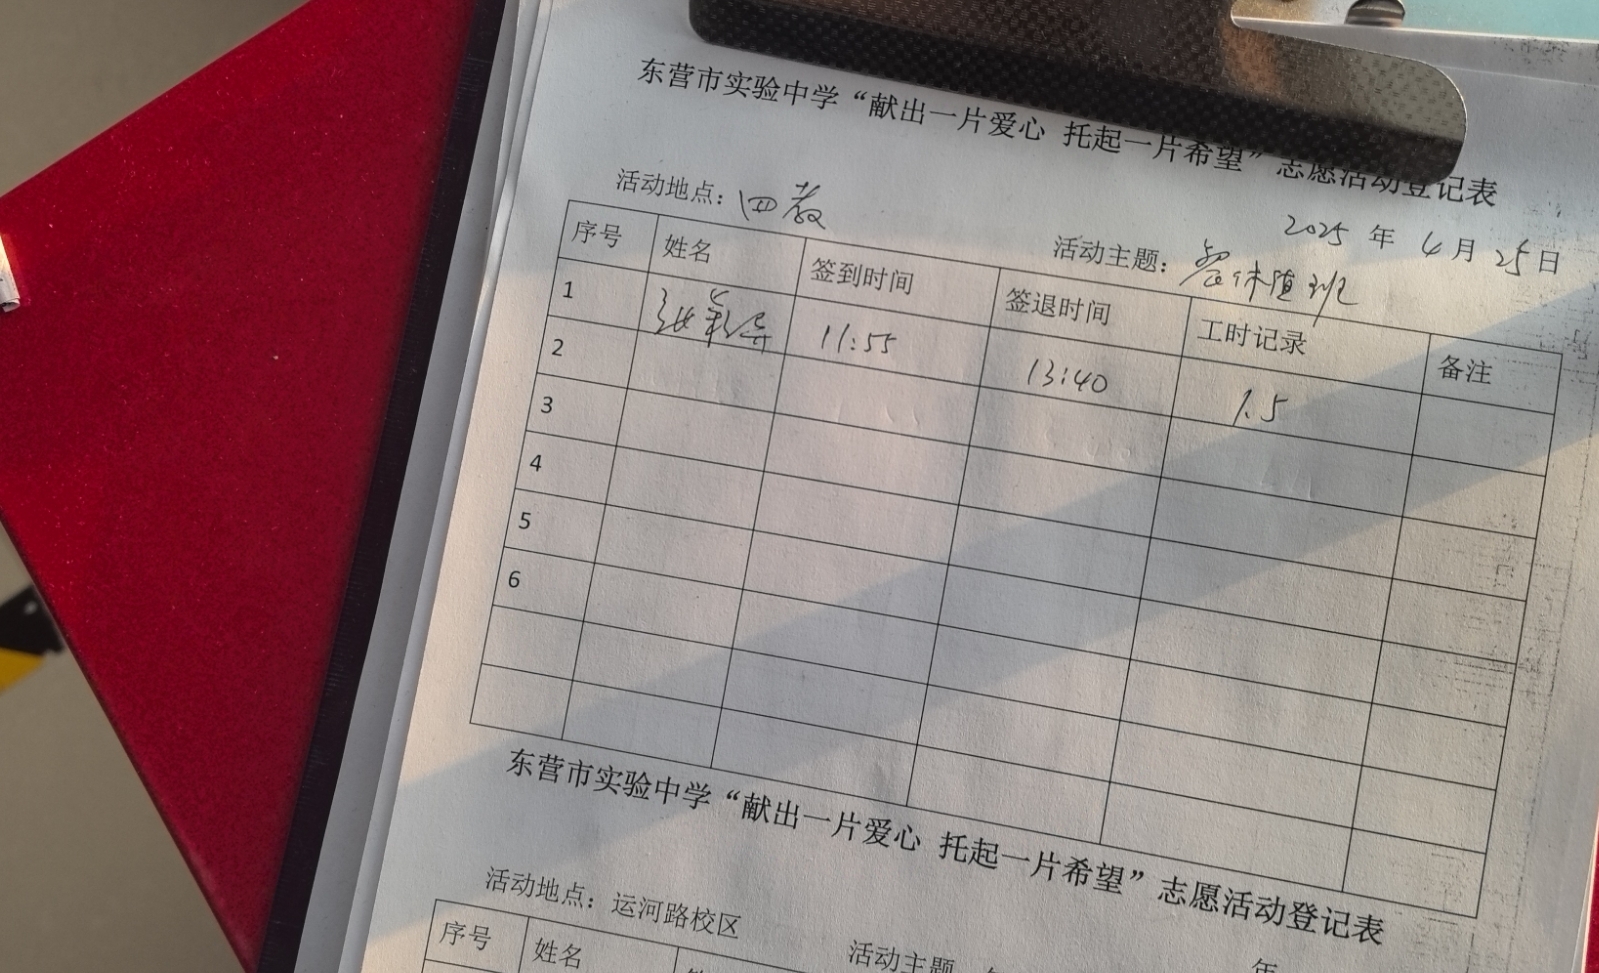 东营市实验中学“献出一片爱心 托起一片希望”志愿活动登记表
2025 年 4 月 25 日
活动地点：四教 活动主题：午休值班
序号 姓名 签到时间 签退时间 工时记录 备注
1 张 11:55 13:40 1.5
2
3
4
5
6
东营市实验中学“献出一片爱心 托起一片希望”志愿活动登记表
年
活动地点：运河路校区 活动主题
序号 姓名